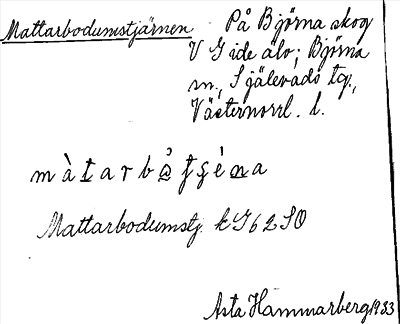 Mattarbodumstjärnen På Björna skog
V Gide älv; Björna
sn., Själevads tg.,
Västernorrl. l.
màtarbo̊tʃéna
Mattarbodumstj. kJ62SO
Asta Hammarberg 1933